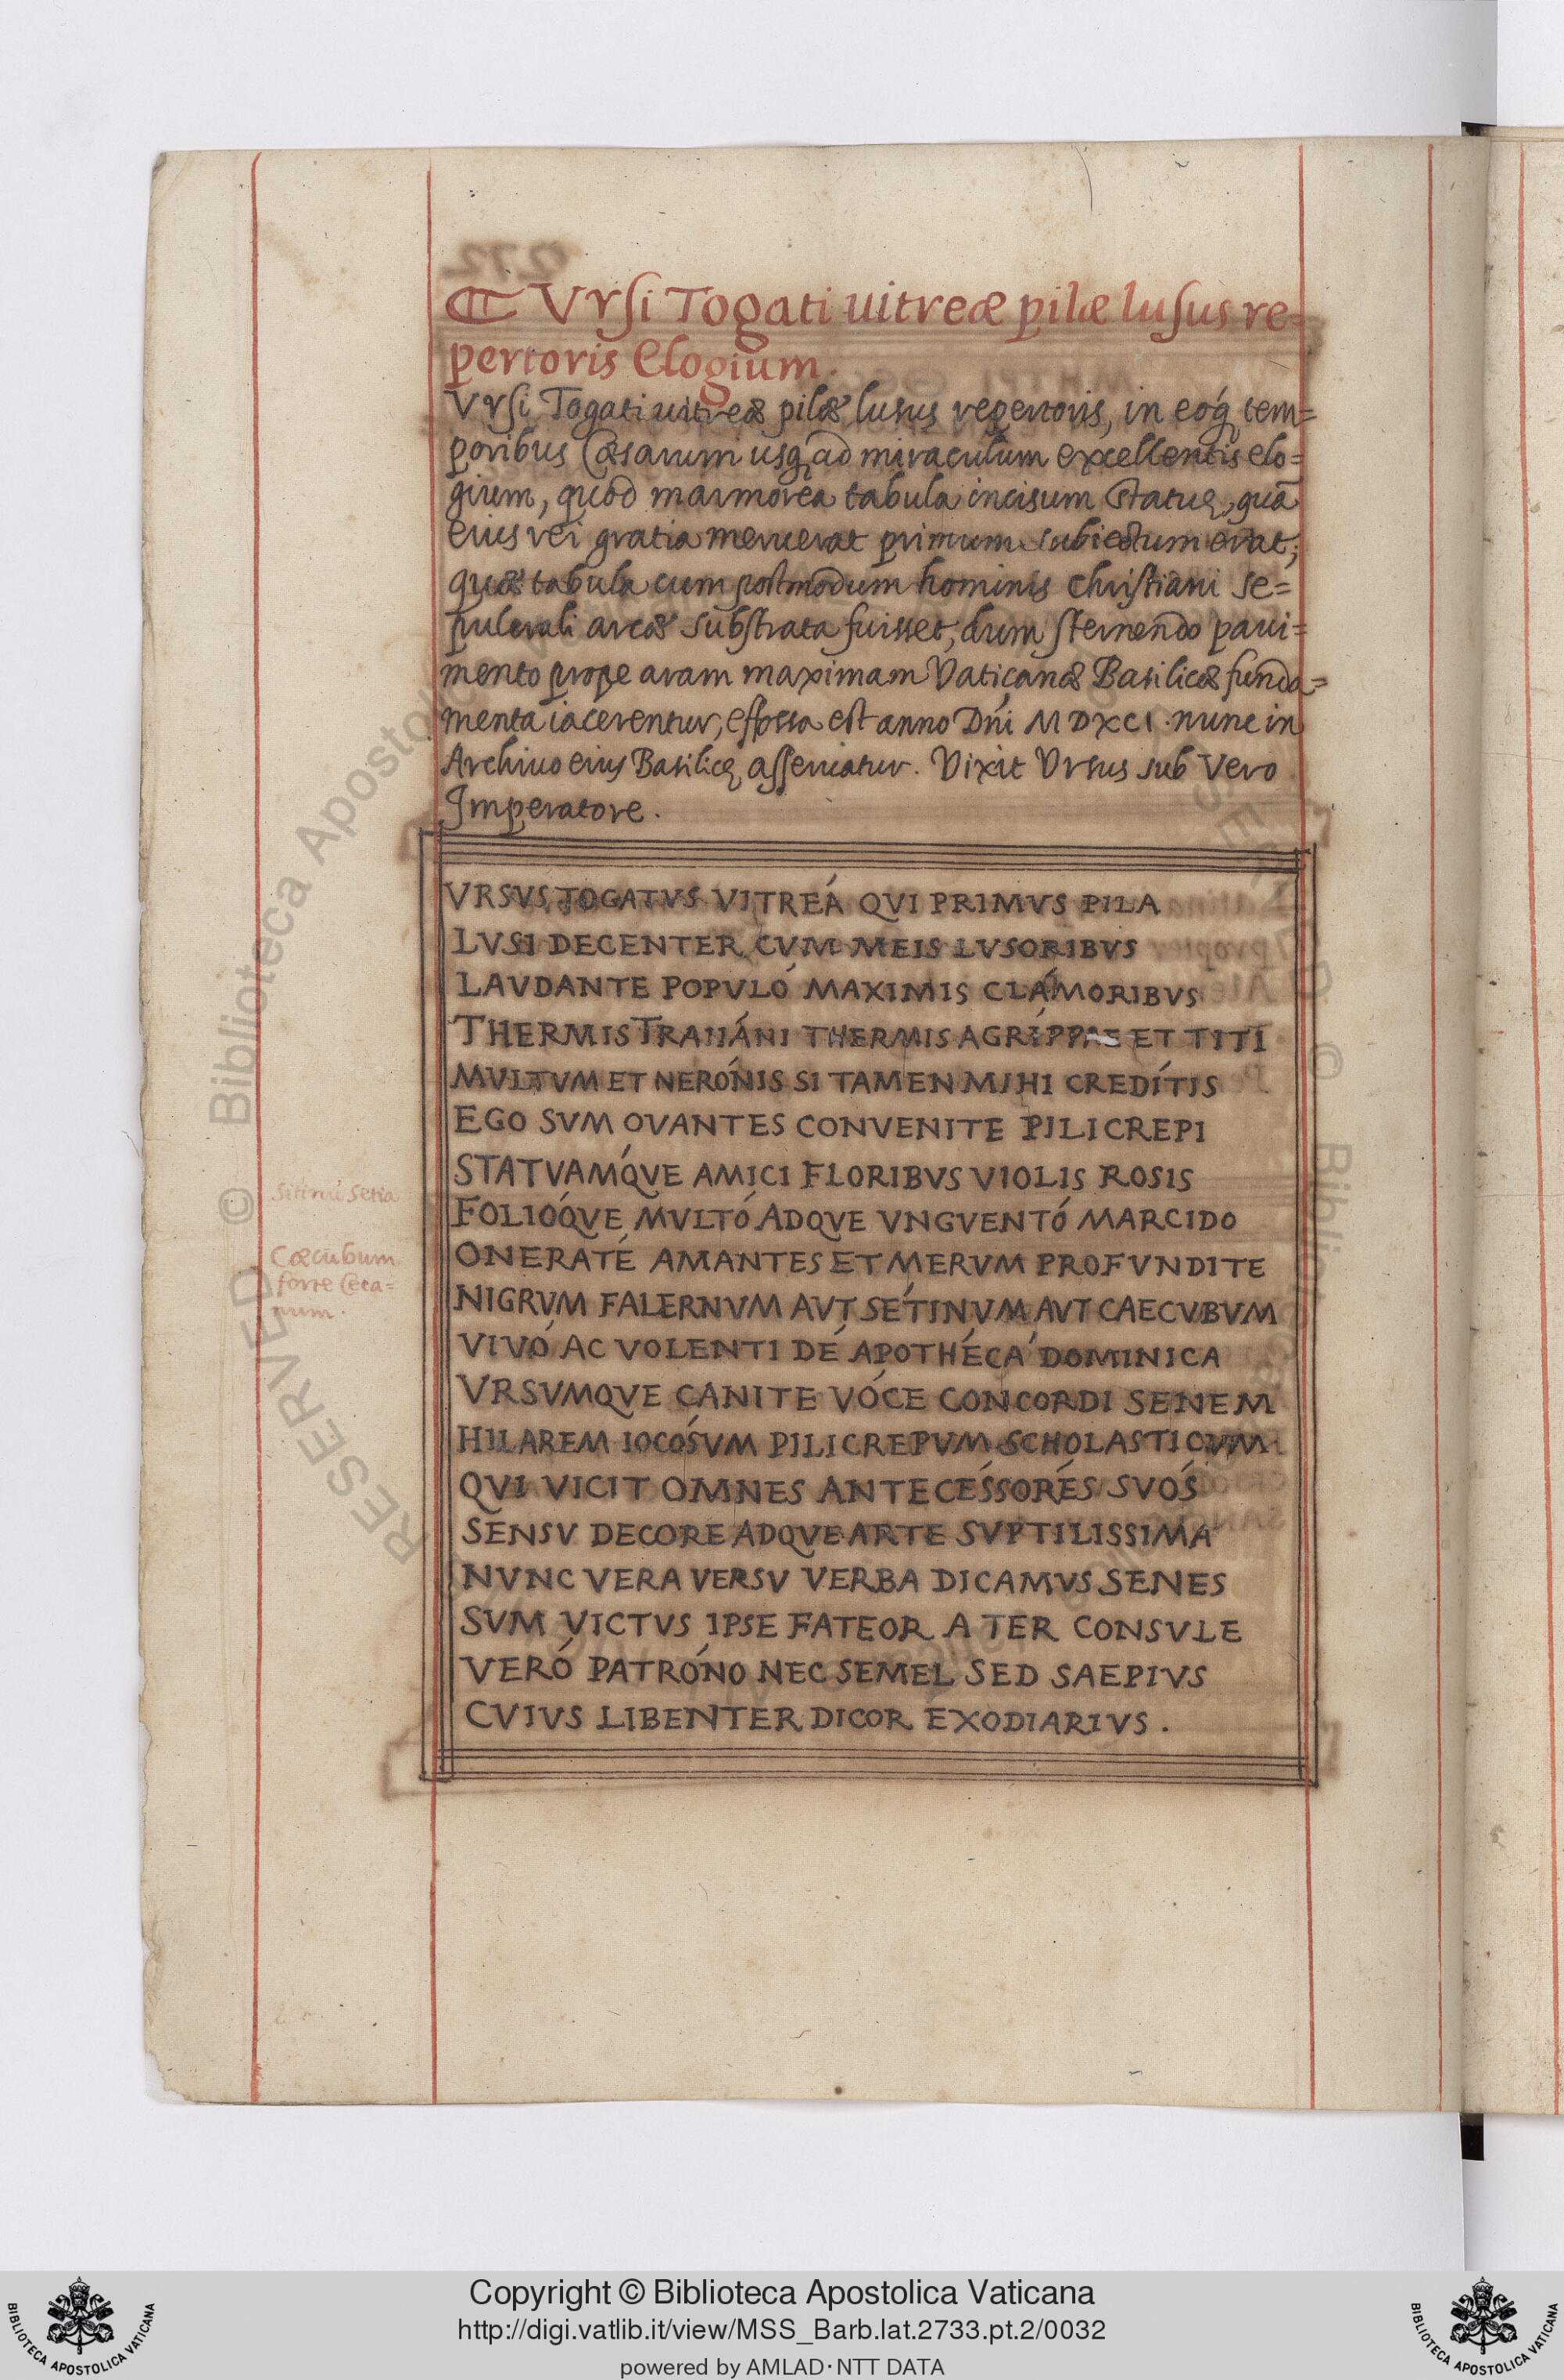 ¶ Vrsi Togati uitreæ pilæ lusus re=
pertoris Elogium.
Vrsi Togati uitreæ pilæ lusus repertoris, in eoq́; tem=
poribus Cæsarum usq́; ad miraculum excellentis elo=
gium, quod marmorea tabula incisum statuę, quã
eius rei gratia meruerat primum subiectum erat;
quæ tabula cum postmodum hominis Christiani se=
pulcrali arcæ substrata fuisset, dum sternendo paui=
mento prope aram maximam Vaticanæ Basilicæ funda=
menta iacerentur, effossa est anno Dñi MDXCI. nunc in
Archiuo eius Basilicę asseruatur. Vixit Vrsus sub Vero
Imperatore.
VRSVS TOGATVS VITREÁ QVI PRIMVS PILA
LVSI DECENTER CVM MEIS LVSORIBVS
LAVDANTE POPVLÓ MAXIMIS CLÁMORIBVS
THERMIS TRAIIÁNI THERMIS AGRÍPPAE ET TITI
MVLTVM ET NERÓNIS SI TAMEN MIHI CREDÍTIS
EGO SVM OVANTES CONVENITE PILICREPI
STATVAMQ́VE AMICI FLORIBVS VIOLIS ROSIS
FOLIÓQVE MVLTÓ ADQVE VNGVENTÓ MARCIDO
ONERATÉ AMANTES ET MERVM PROFVNDITE
NIGRVM FALERNVM AVT SÉTINVM AVT CAECVBVM
Sitinũ Setia
Cæcubum
forte Ceca=
num.
VIVÓ AC VOLENTI DÉ APOTHÉCÁ DOMINICA
VRSVMQVE CANITE VÓCE CONCORDI SENEM
HILAREM IOCÓSVM PILICREPVM SCHOLASTICVM
QVI VICIT OMNES ANTECESSORÉS SVOS
SENSV DECORE ADQVE ARTE SVPTILISSIMA
NVNC VERA VERSV VERBA DICAMVS SENES
SVM VICTVS IPSE FATEOR A TER CONSVLE
VERÓ PATRÓNO NEC SEMEL SED SAEPIVS
CVIVS LIBENTER DICOR EXODIARIVS.
Copyright © Biblioteca Apostolica Vaticana
http://digi.vatlib.it/view/MSS_Barb.lat.2733.pt.2/0032
powered by AMLAD·NTT DATA